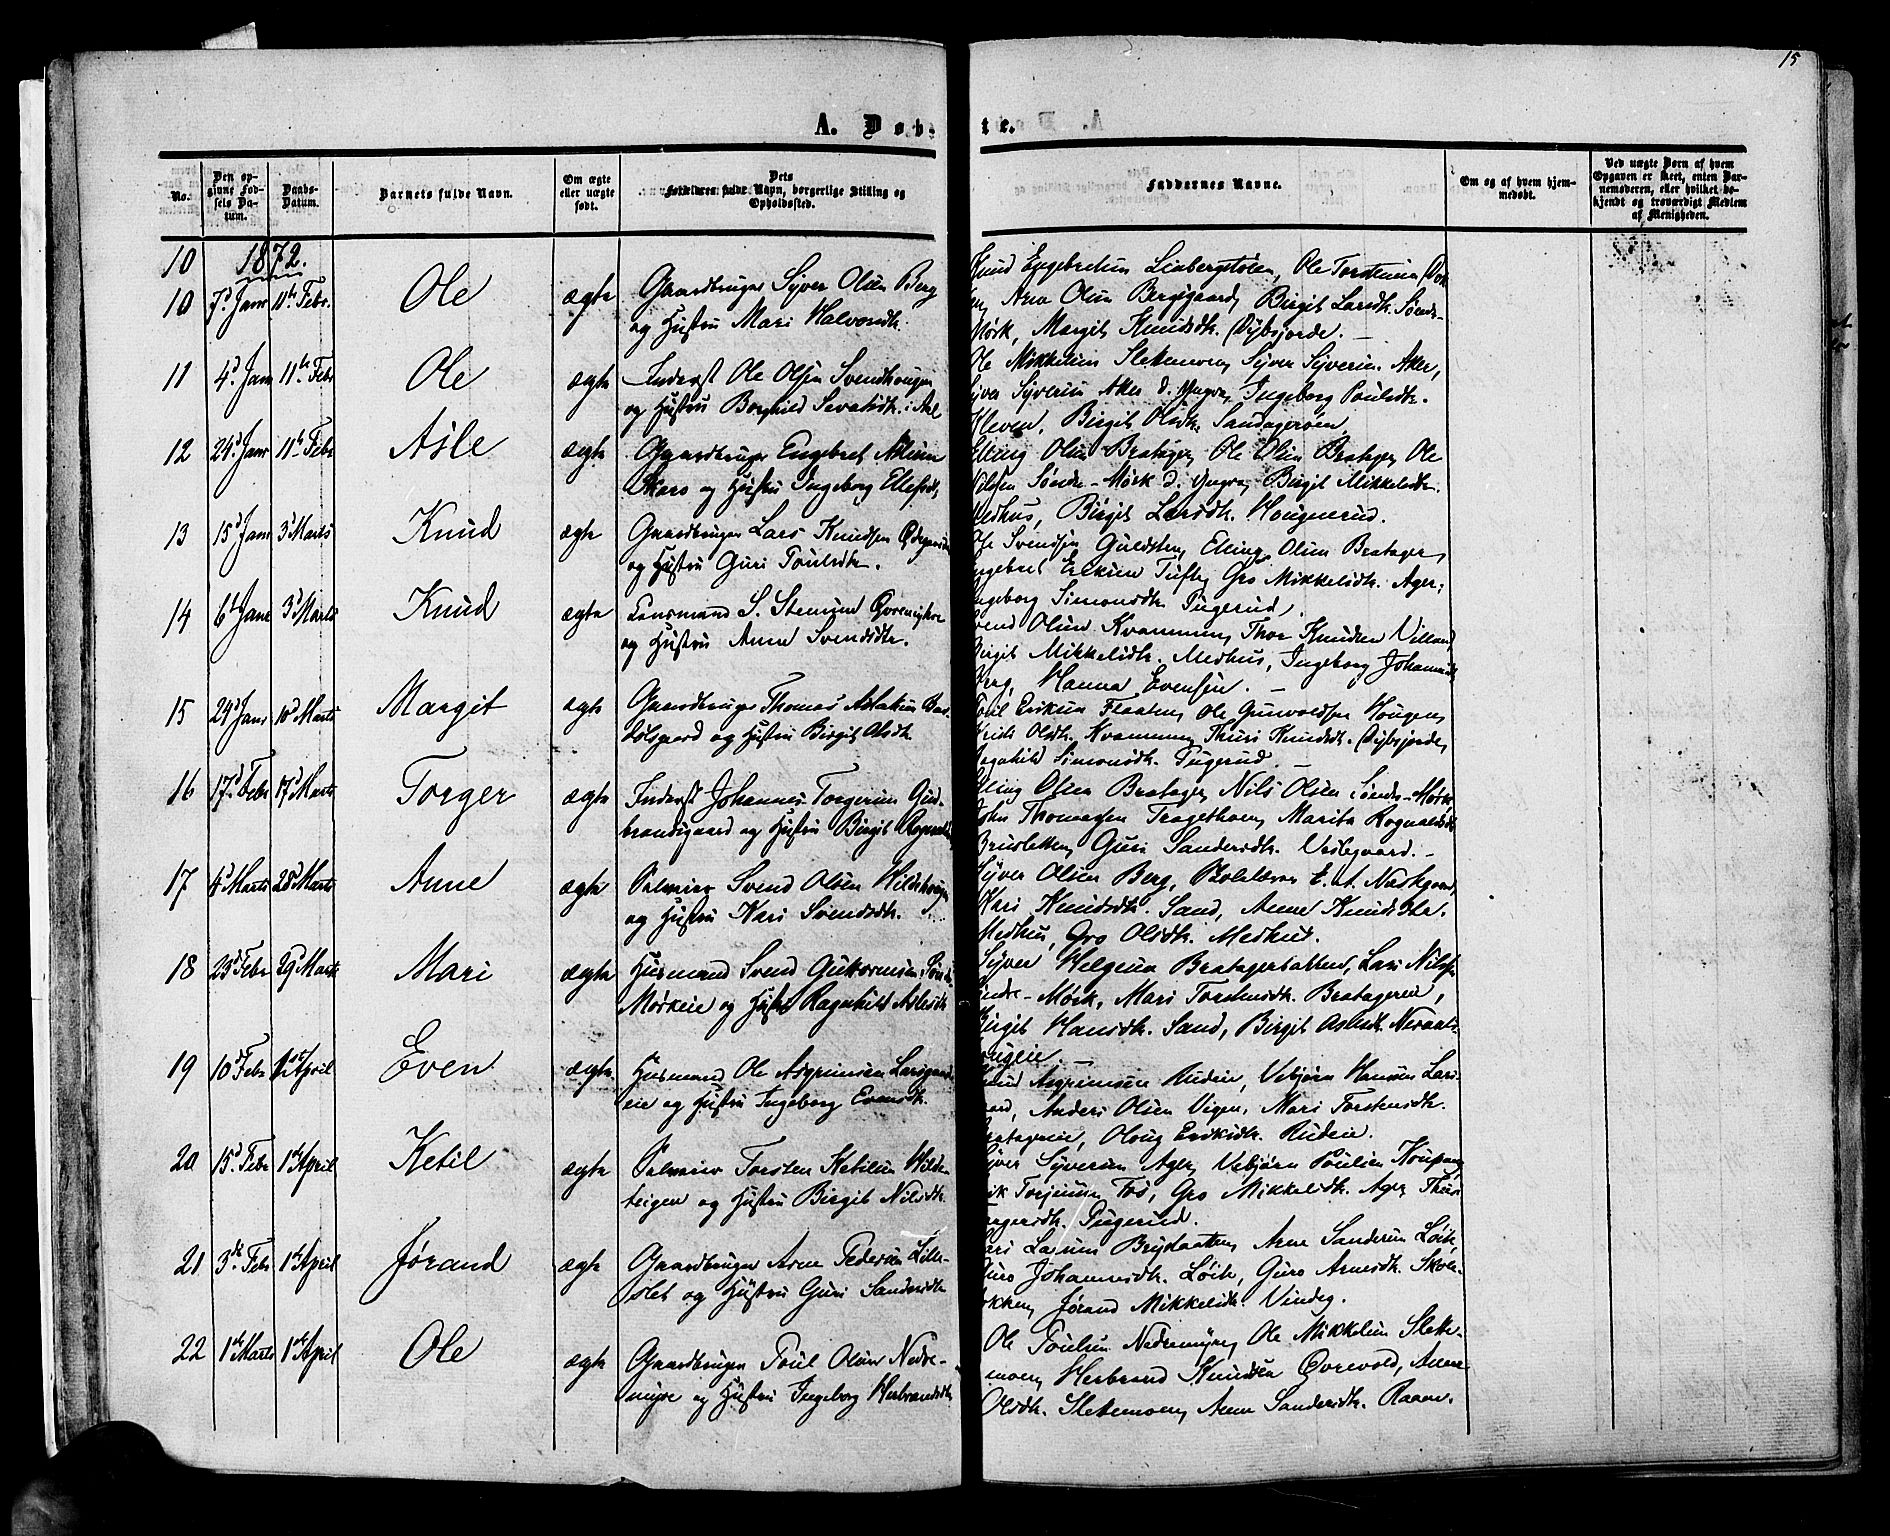 15
A. Døb-
te.
No.
Den op-
givne Fød-
sels Da-
tum.
Daabs-
Datum.
Barnets fulde Navn.
Om ægte
eller uægte
født.
Dets
Forældres fulde Navn, borgerlige Stilling og
Opholdssted.
Faddernes Navne.
Om og af hvem hjem-
medøbt.
Ved uægte Børn af hvem
Opgaven er skeet, enten Bar-
nemoderen, eller hvilket be-
kjendt og troværdigt Medlem
af Menigheden.
10 1872.
10 7d Janr 11te Febr. Ole ægte Gaardbruger Syver Olsen Berg
og Hustru Mari Halvorsdtr.
Knud Engebretsen Lindbergstøen, Ole Torstensen
Arne Olsen Berggaard, Birgit Larsdtr. Søndre-
Mørk, Margit Knudsdtr. Dybsjorde. —
11 4d Janr 11te Febr Ole ægte Inderst Ole Olsen Svendhougen
og Hustru Borghild Sevatsdtr. i Aal
Ole Mikkelsen Slettemoen, Syver Syversen Aker,
Syver Syversen Aker d. Yngre, Ingeborg Poulsdtr.
Kleven, Birgit Olsdtr. Sandagerøen.
12 24d Janr 11te Febr Asle ægte Gaardbruger Engebret Aslesen
Skars og Hustru Ingeborg Ellefsdtr.
Elling Olsen Bratager, Ole Olsen Bratager, Ole
Nilsen Søndre-Mørk d. Yngre, Birgit Mikkelsdtr.
Medhus, Birgit Larsdtr. Hougnerud.
13 15d Janr 3d Marts Knud ægte Gaardbruger Lars Knudsen
og Hustru Guri Poulsdtr.
Ole Svendsen Guldsten, Elling Olsen Bratager,
Engebret Eriksen Tufte, Gro Mikkelsdtr. Ager,
Ingeborg Simonsdtr. Tugerud.
14 6te Janr 3d Marts Knud ægte Lensmand S. Stensen
og Hustru Anne Svendsdtr.
Svend Olsen Kvammen, Thor Knudsen Villand
Birgit Mikkelsdtr. Medhus, Ingeborg Johannesdtr
Berg, Hanna Evensen. —
15 29d Janr 10d Marts Margit ægte Gaardbruger Thomas Aslaksen Bar-
dolsgaard og Hustru Birgit Olsdtr.
Poul Eriksen Flaaten, Ole Gunvoldsen Hougen,
Olsdtr. Kvammen, Thuri Knudsdtr. Dybsjorde,
Ragnhild Simonsdtr. Tugerud. —
16 17d Febr 17d Marts Torger ægte Inderst Johannes Torgersen Gud-
brandsgaard og Hustru Birgit Rognaldsdtr
Elling Olsen Bratager, Nils Olsen Søndre-Mørk,
John Thorvaldsen Tragethon, Marita Rognaldsdtr
Brusletten, Guri Sandersdtr. Veslegaard. —
17 4d Marts 28d Marts Anne ægte Pelmier Svend Olsen Hildehougen
og Hustru Kari Svendsdtr.
Syver Olsen Berg, Skolelærer E. A. Naskgaard,
Kari Knudsdtr. Sand, Anne Knudsdtr.
Medhus, Gro Olsdtr. Medhus.
18 23d Febr 29d Marts Mari ægte Husmand Svend Guttormsen Søndre
Mørkeie og Hustru Ragnhild Aslesdtr
Syver Helgesen Bratagerbatten, Lars Nilsen
Søndre-Mørk, Mari Torstensdtr. Bratagereie,
Birgit Hansdtr. Sand, Birgit Aslesdtr Neraals-
hougeie. —
19 10d Febr 1st April Even ægte Husmand Ole Asgrimsen Larsgaard-
eie og Hustru Ingeborg Evensdtr.
Knud Asgrimsen Rudeie, Vebjørn Hansen Lars-
gaard, Anders Olsen Vigen, Mari Torstensdtr.
Bratagereie, Olaug Eriksdtr. Rudeie.
20 15d Febr 1ste April Ketil ægte Pelmier Torsten Ketilsen Hilde-
teigen og Hustru Birgit Nilsdtr.
Syver Syversen Ager, Vebjørn Poulsen Koupang,
Erik Torjusen Fos, Gro Mikkelsdtr. Ager, Thuri
Torgersdtr. Tugerud.
21 3die Febr 1ste April Jørand ægte Gaardbruger Arne Pedersen Lille-
slet og Hustru Guri Sandersdtr
Lars Larsen Brydaaten, Arne Sandersen Løik,
Guro Johannesdtr. Løik, Guro Arnesdtr. Skole-
bakken, Jørand Mikkelsdtr. Vindeg.
22 1ste Marts 1ste April Ole ægte Gaardbruger Poul Olsen Nedre-
myre og Hustru Ingeborg Herbrandsdtr
Ole Poulsen Nedremyre, Ole Mikkelsen Slette-
moen, Herbrand Knudsen Øvrevold, Anne
Olsdtr. Slettemoen, Anne Sandersdtr. Raaen.